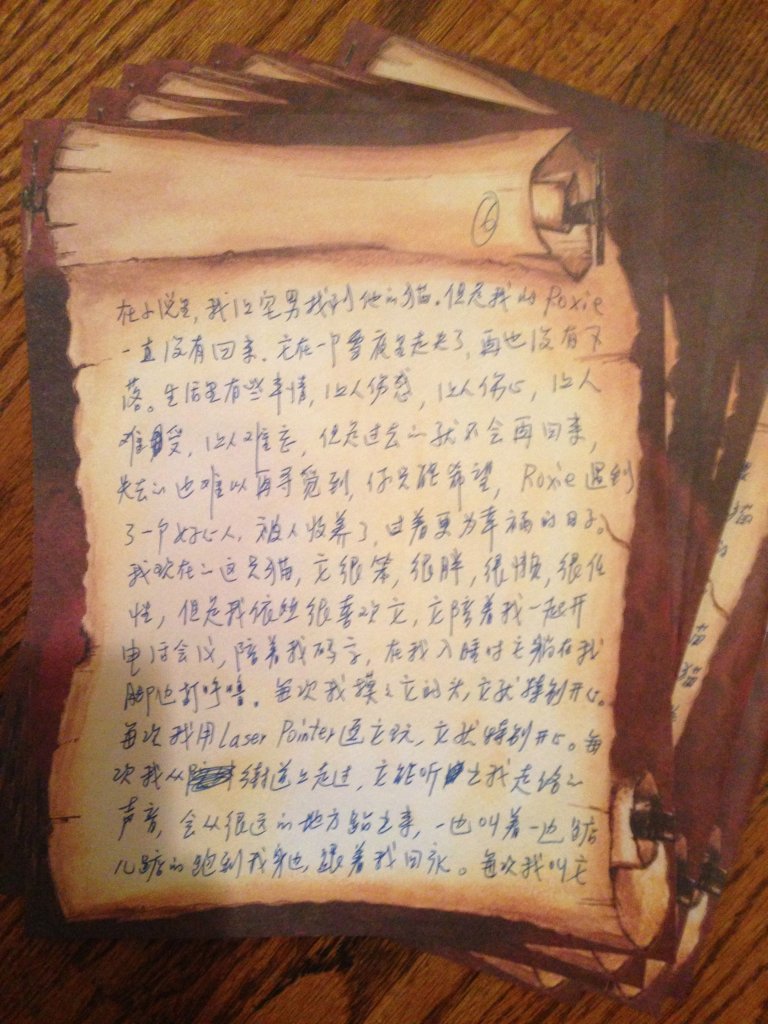 ⑥
在小说里，我让宅男找到他的猫。但是我的Roxie
一直没有回来。它在一个雪夜里走失了，再也没有下
落。生活里有些事情，让人伤感，让人伤心，让人
难受，让人难忘，但是过去的就不会再回来，
失去的也难以再寻觅到，你只能希望，Roxie遇到
了一个好心人，被人收养了，过着更为幸福的日子。
我现在的这只猫，它很笨，很胖，很懒，很任
性，但是我依然很喜欢它，它陪着我一起开
电话会议，陪着我码字，在我入睡时它躺在我
脚边打呼噜。每次我摸摸它的头，它就特别开心。
每次我用Laser Pointer逗它玩，它就特别开心。每
次我从街道上走过，它能听出我走路的
声音，会从很远的地方跑出来，一边叫着一边颠
儿颠的跑到我身边，跟着我回家。每次我叫它
猫